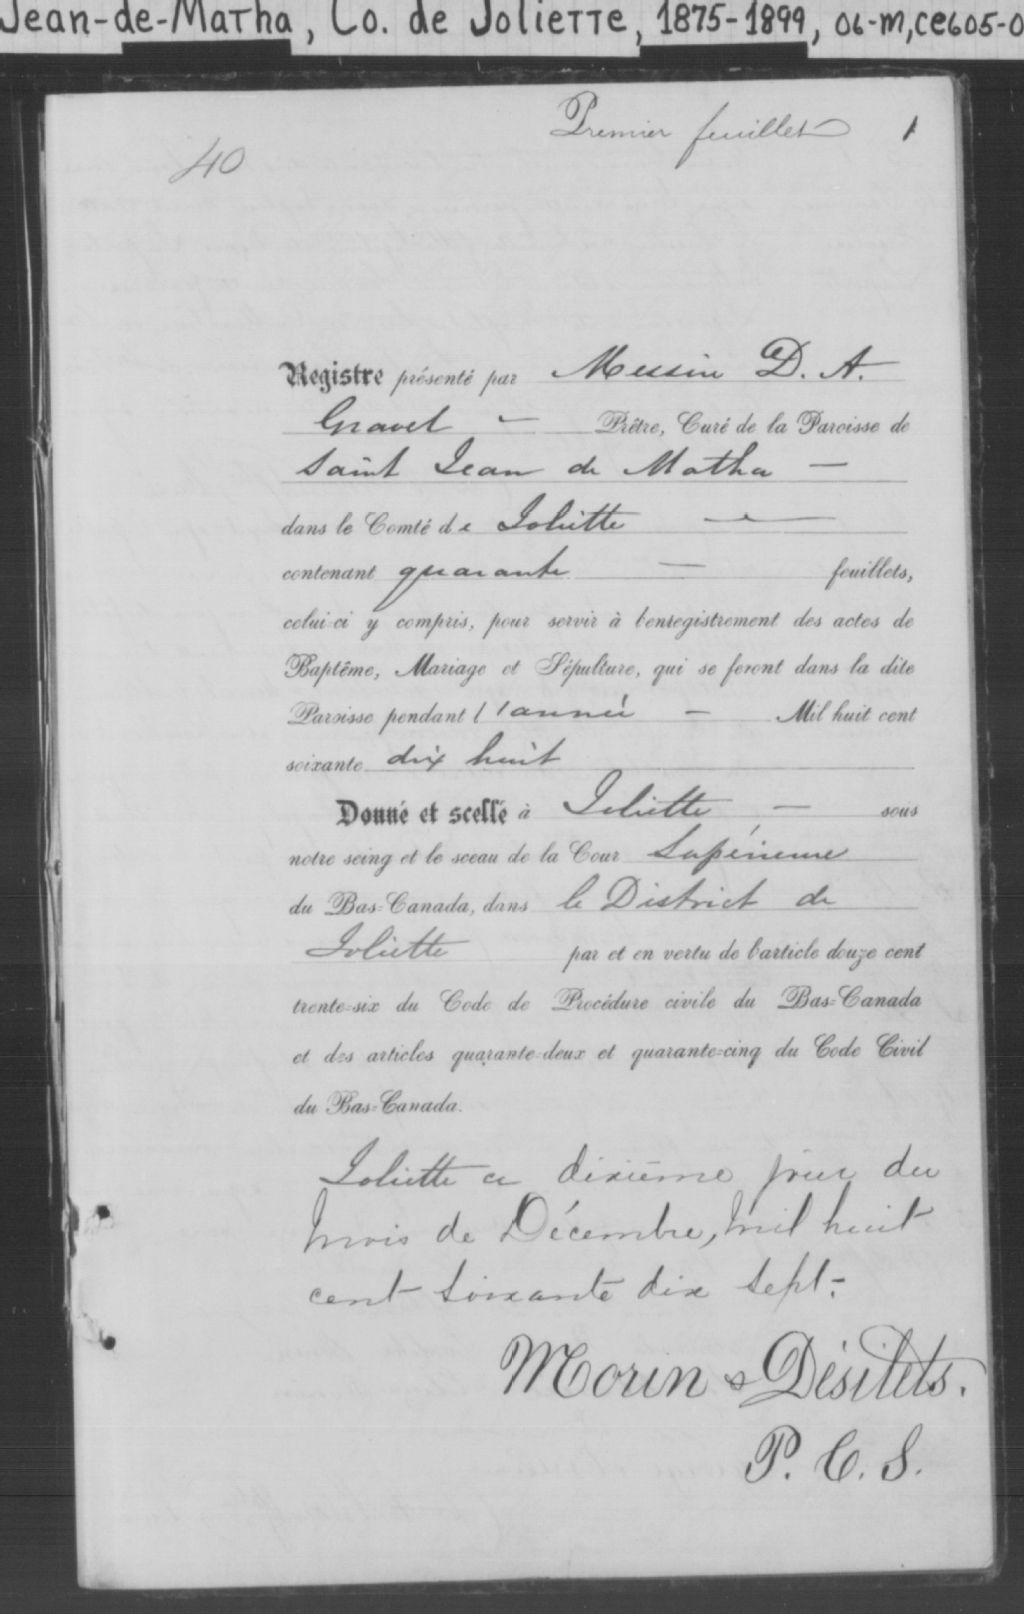 Jean-de-Matha, Co. de Joliette, 1875-1899, 06-M,CE605-0
Premier feuillet 1
40
Registre présenté par Messire D. A.
Gravel - Prêtre, Curé de la Paroisse de
Saint Jean de Matha -
dans le Comté de Joliette -
contenant quarante - feuillets,
celui-ci y compris, pour servir à l'enregistrement des actes de
Baptême, Mariage et Sépulture, qui se feront dans la dite
Paroisse pendant l'année - Mil huit cent
soixante dix huit
Donné et scellé à Joliette - sous
notre seing et le sceau de la Cour Supérieure
du Bas-Canada, dans le District de
Joliette par et en vertu de l'article douze cent
trente-six du Code de Procédure civile du Bas-Canada
et des articles quarante-deux et quarante-cinq du Code Civil
du Bas-Canada.
Joliette ce dixième jour du
mois de Décembre, mil huit
cent soixante dix sept.-
Morin & Désilets.
P. C. S.